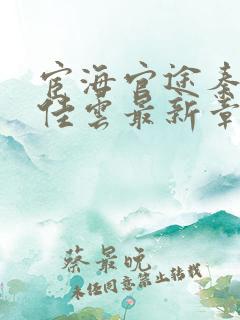 宦海官途秦
佳雲最新章
蔡最晚
未任同意禁止转载